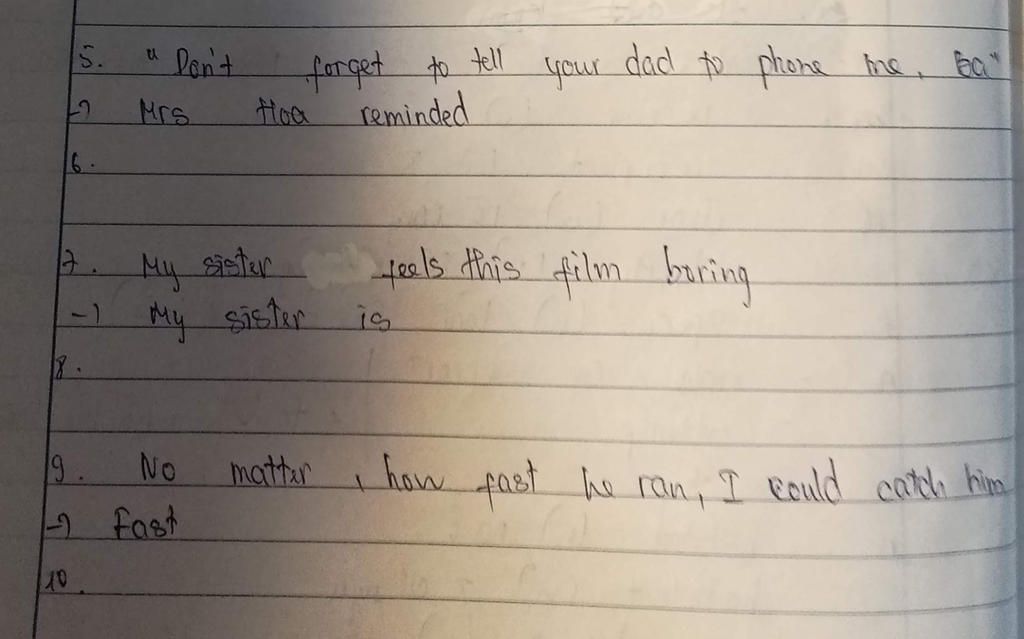 5. "Don't forget to tell your dad to phone me, Ba"
→ Mrs Hoa reminded
6.
7. My sister feels this film boring
→ My sister is
8.
9. No matter, how fast he ran, I could catch him
→ Fast
10.